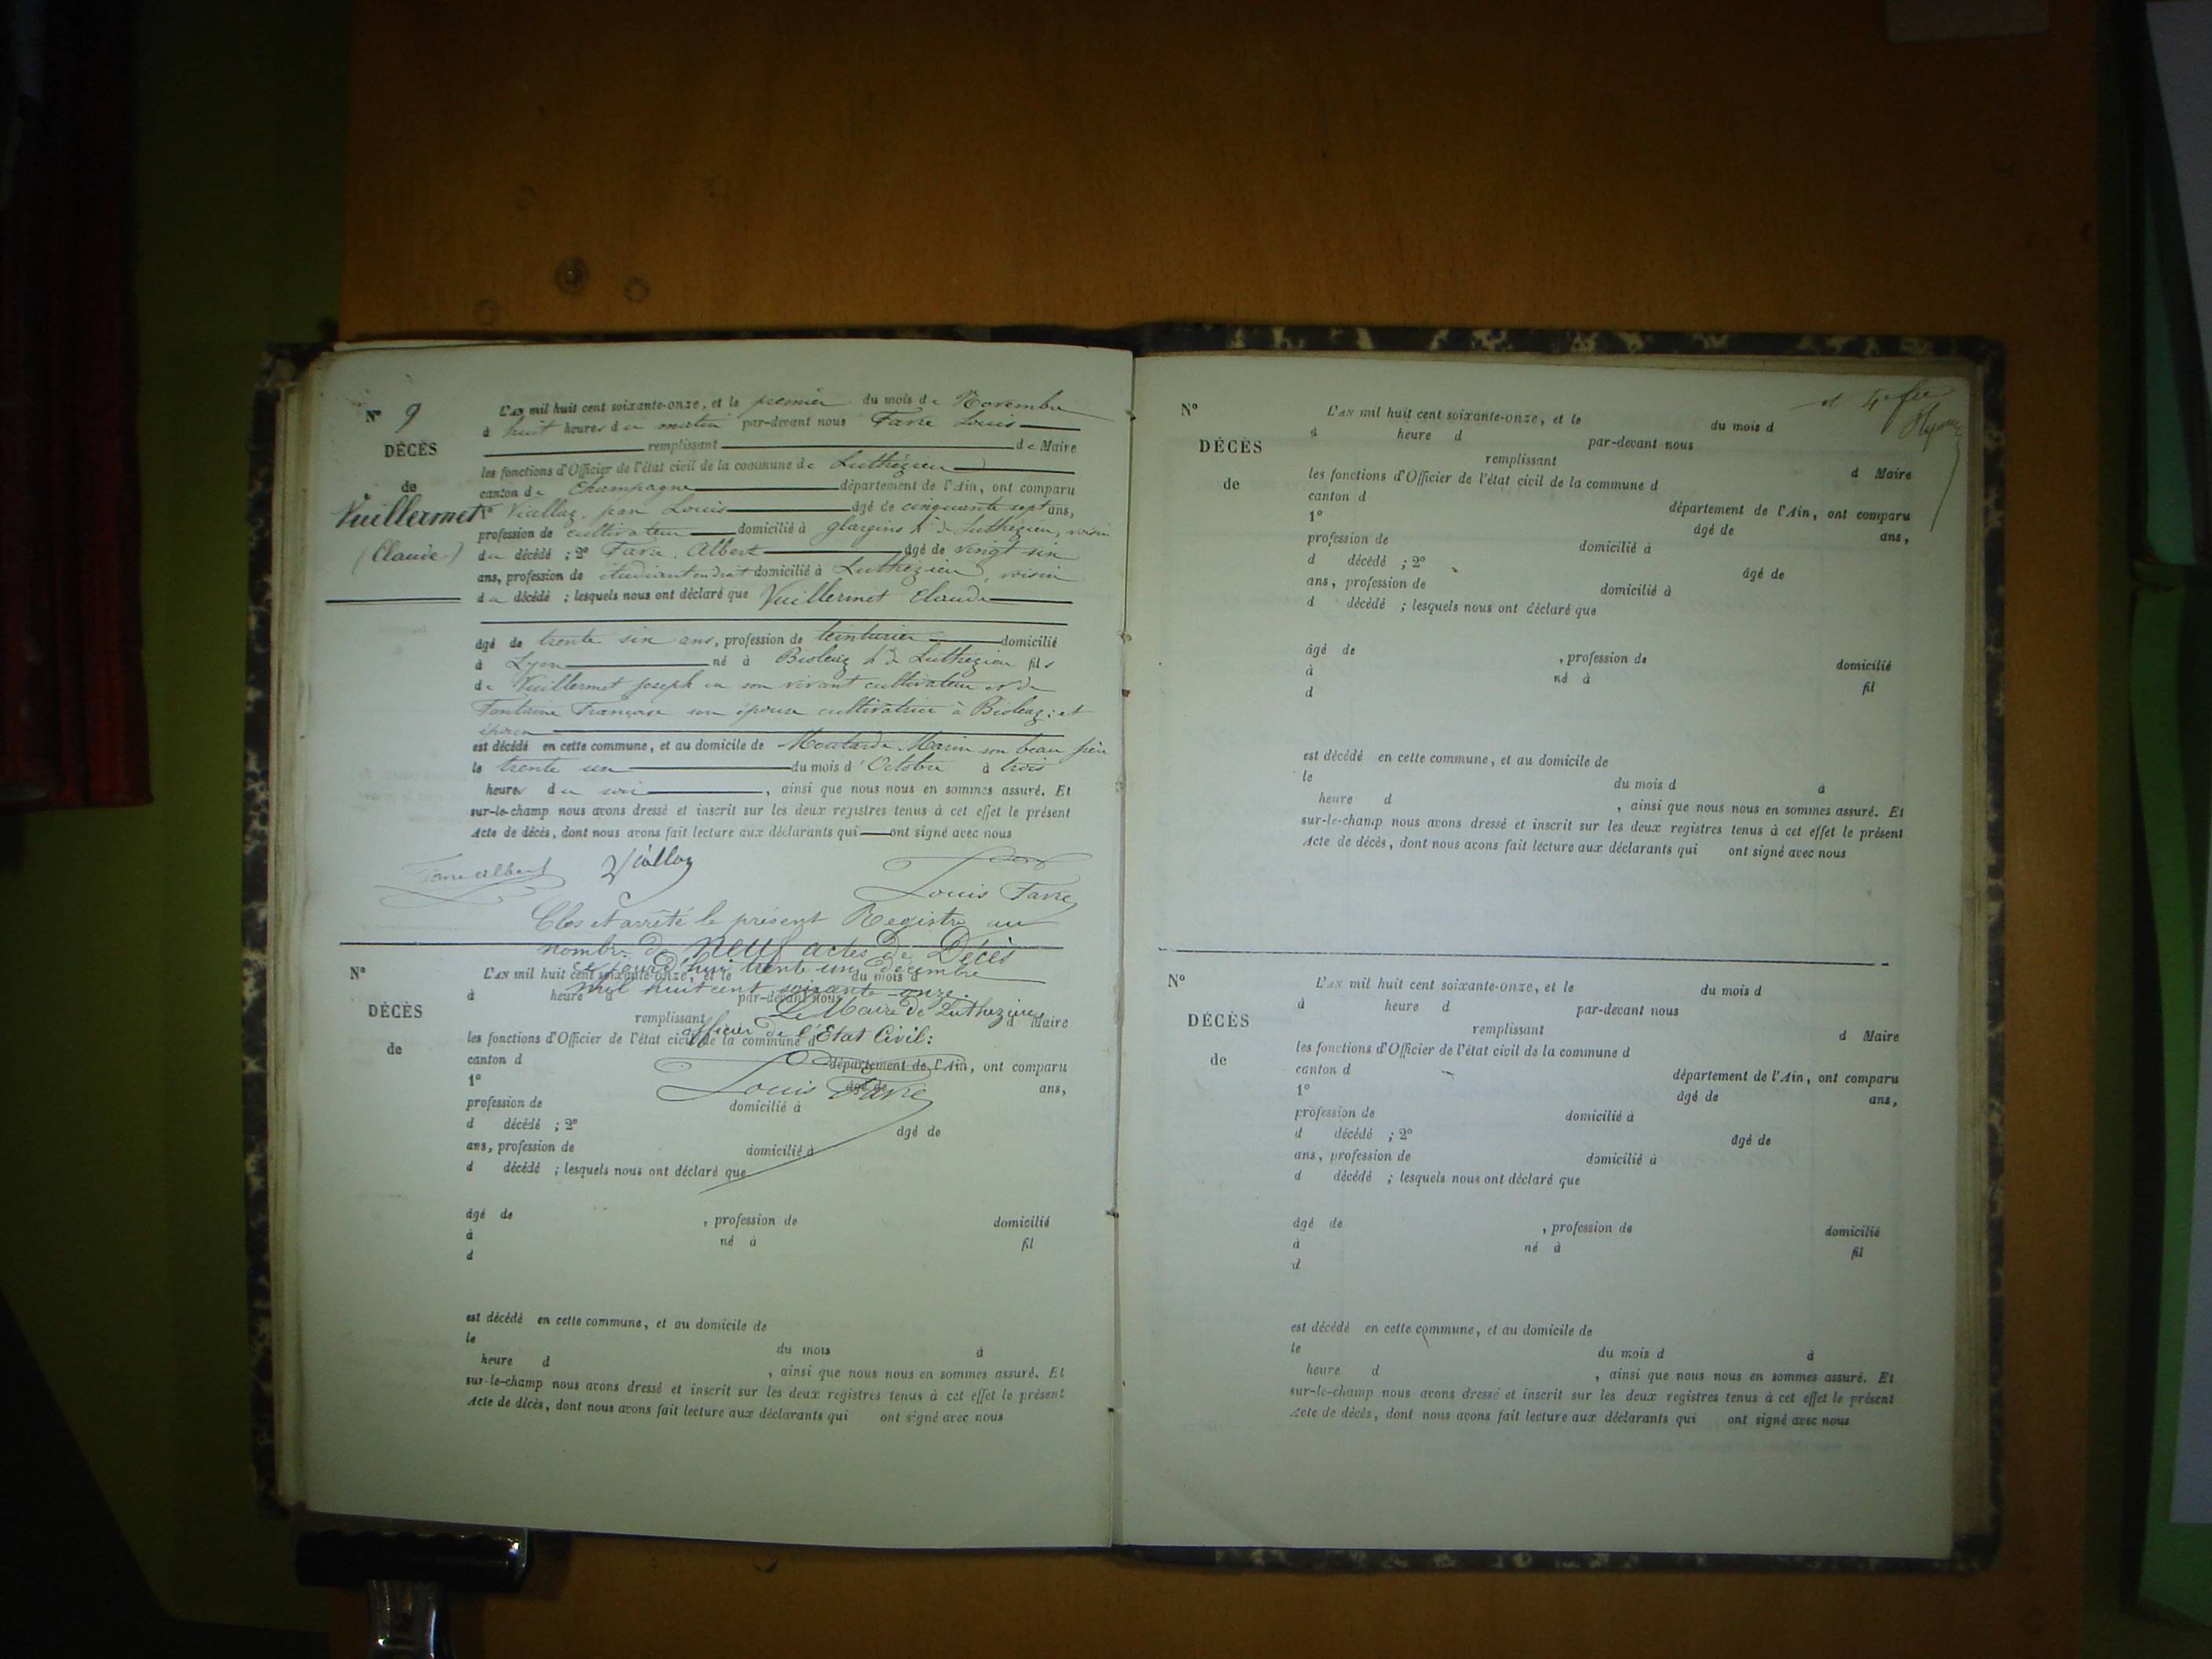 N° 9
DÉCÈS
de
Vuillermet
(Claude)
L'AN mil huit cent soixante-onze, et le premier du mois de Novembre
à huit heures du matin par-devant nous Favre Louis
remplissant de Maire
les fonctions d'Officier de l'état civil de la commune de Luthézieu
canton de Champagne département de l'Ain, ont comparu
1° Viallaz Louis âgé de cinquante sept ans,
profession de cultivateur domicilié à Luthezieu, voisin
du décédé ; 2° Favre Albert âgé de vingt six
ans, profession de étudiant en droit domicilié à Luthézieu, voisin
du décédé ; lesquels nous ont déclaré que Vuillermet Claude
âgé de trente six ans, profession de teinturier domicilié
à Lyon né à Bioleaz h. de Luthézieu fils
de Vuillermet Joseph en son vivant cultivateur et de
Fontaine Françoise son épouse cultivatrice à Bioleaz ; et
époux
est décédé en cette commune, et au domicile de Moutarde Marin son beau père
le trente un du mois d'Octobre à trois
heures du soir , ainsi que nous nous en sommes assuré. Et
sur-le-champ nous avons dressé et inscrit sur les deux registres tenus à cet effet le présent
Acte de décès, dont nous avons fait lecture aux déclarants qui ont signé avec nous
Favre albert Viallaz
Louis Favre
Clos et arrêté le présent Registre au
nombre de neuf actes de Décès
ce jourd'hui trente un décembre
mil huit cent soixante-onze.
Le Maire de Luthezieu
officier de l'État Civil :
Louis Favre
N°
DÉCÈS
de
L'AN mil huit cent soixante-onze, et le du mois d
à heure d par-devant nous
remplissant d Maire
les fonctions d'Officier de l'état civil de la commune d
canton d département de l'Ain, ont comparu
1° âgé de ans,
profession de domicilié à
d décédé ; 2° âgé de
ans, profession de domicilié à
d décédé ; lesquels nous ont déclaré que
âgé de , profession de domicilié
à né à fil
d
est décédé en cette commune, et au domicile de
le du mois à
heure d , ainsi que nous nous en sommes assuré. Et
sur-le-champ nous avons dressé et inscrit sur les deux registres tenus à cet effet le présent
Acte de décès, dont nous avons fait lecture aux déclarants qui ont signé avec nous
N°
DÉCÈS
de
L'AN mil huit cent soixante-onze, et le du mois d
à heure d par-devant nous
remplissant d Maire
les fonctions d'Officier de l'état civil de la commune d
canton d département de l'Ain, ont comparu
1° âgé de ans,
profession de domicilié à
d décédé ; 2° âgé de
ans, profession de domicilié à
d décédé ; lesquels nous ont déclaré que
âgé de , profession de domicilié
à né à fil
d
est décédé en cette commune, et au domicile de
le du mois d à
heure d , ainsi que nous nous en sommes assuré. Et
sur-le-champ nous avons dressé et inscrit sur les deux registres tenus à cet effet le présent
Acte de décès, dont nous avons fait lecture aux déclarants qui ont signé avec nous
N°
DÉCÈS
de
L'AN mil huit cent soixante-onze, et le du mois d
à heure d par-devant nous
remplissant d Maire
les fonctions d'Officier de l'état civil de la commune d
canton d département de l'Ain, ont comparu
1° âgé de ans,
profession de domicilié à
d décédé ; 2° âgé de
ans, profession de domicilié à
d décédé ; lesquels nous ont déclaré que
âgé de , profession de domicilié
à né à fil
d
est décédé en cette commune, et au domicile de
le du mois d à
heure d , ainsi que nous nous en sommes assuré. Et
sur-le-champ nous avons dressé et inscrit sur les deux registres tenus à cet effet le présent
Acte de décès, dont nous avons fait lecture aux déclarants qui ont signé avec nous